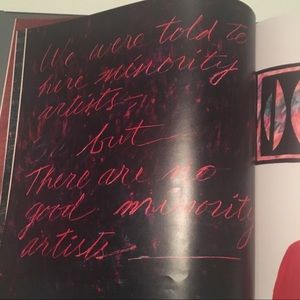 We were told to
hire minority
artists —
but
There are no
good minority
artists